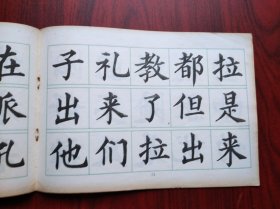 在 子礼教都拉
派 出来了但是
孔 他们拉出来